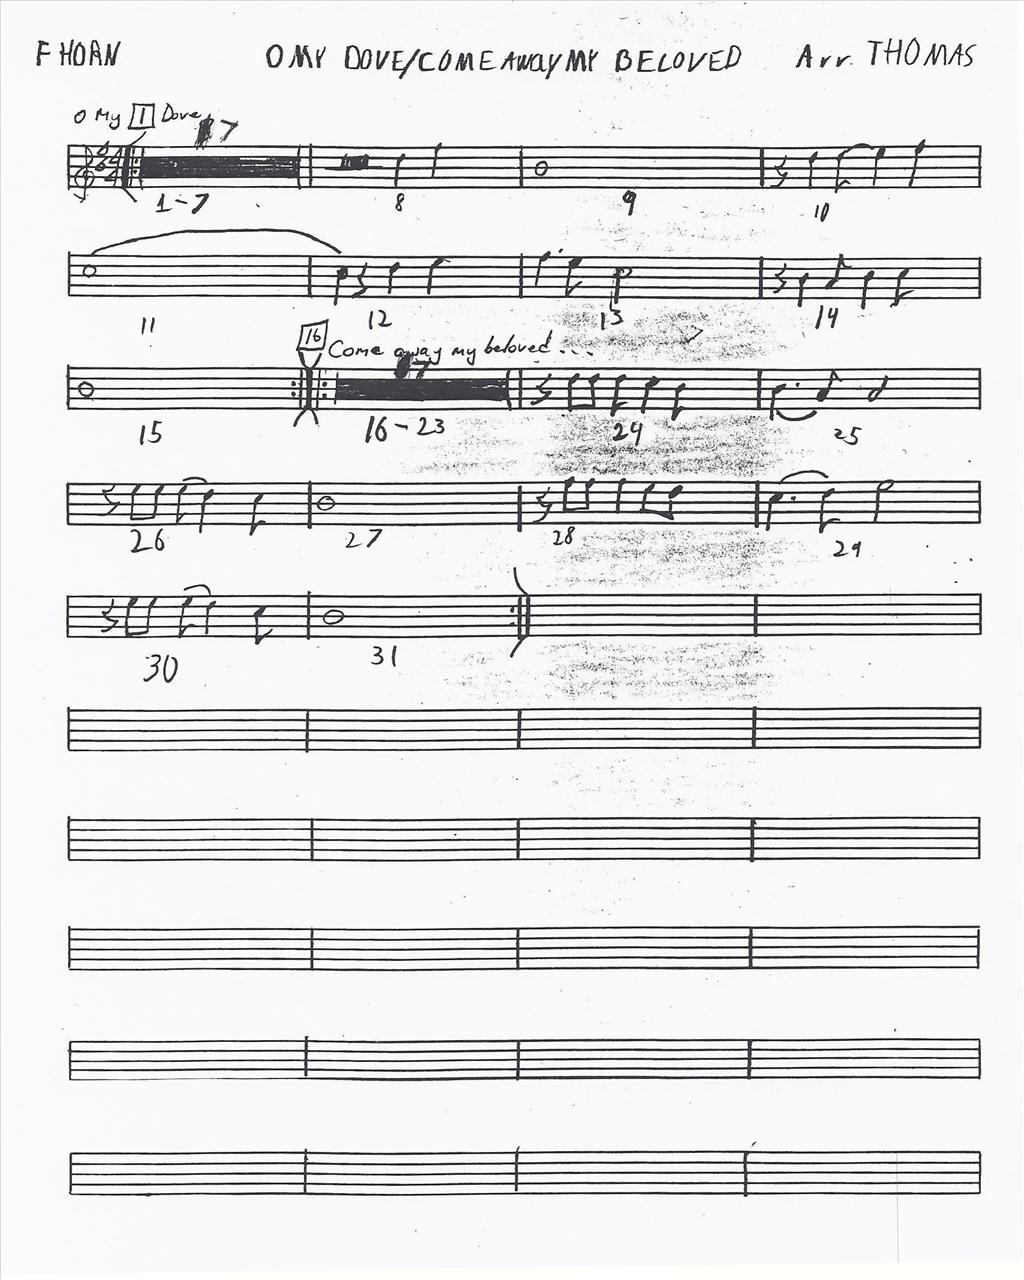 F HORN O MY DOVE/COME AWAY MY BELOVED Arr. THOMAS
O My 1 Dove
7
1-7 8 9 10
11 12 13 14
16 Come away my beloved...
7
15 16-23 24 25
26 27 28 29
30 31